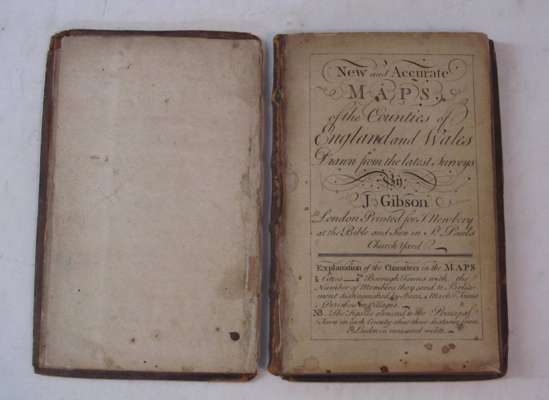 New and Accurate
MAPS
of the Counties of
England and Wales
Drawn from the latest Surveys
By
J. Gibson
London Printed for J. Newbery
at the Bible and Sun in St. Pauls
Church Yard
Explanation of the Characters in the MAPS
Cities Borough Towns with the
Number of Members they send to Parlia-
ment distinguished by Stars, Market Towns
Parishes or Villages
NB. The Figures annexed to the Principal
Town in each County shew their distance from
London in measured miles.